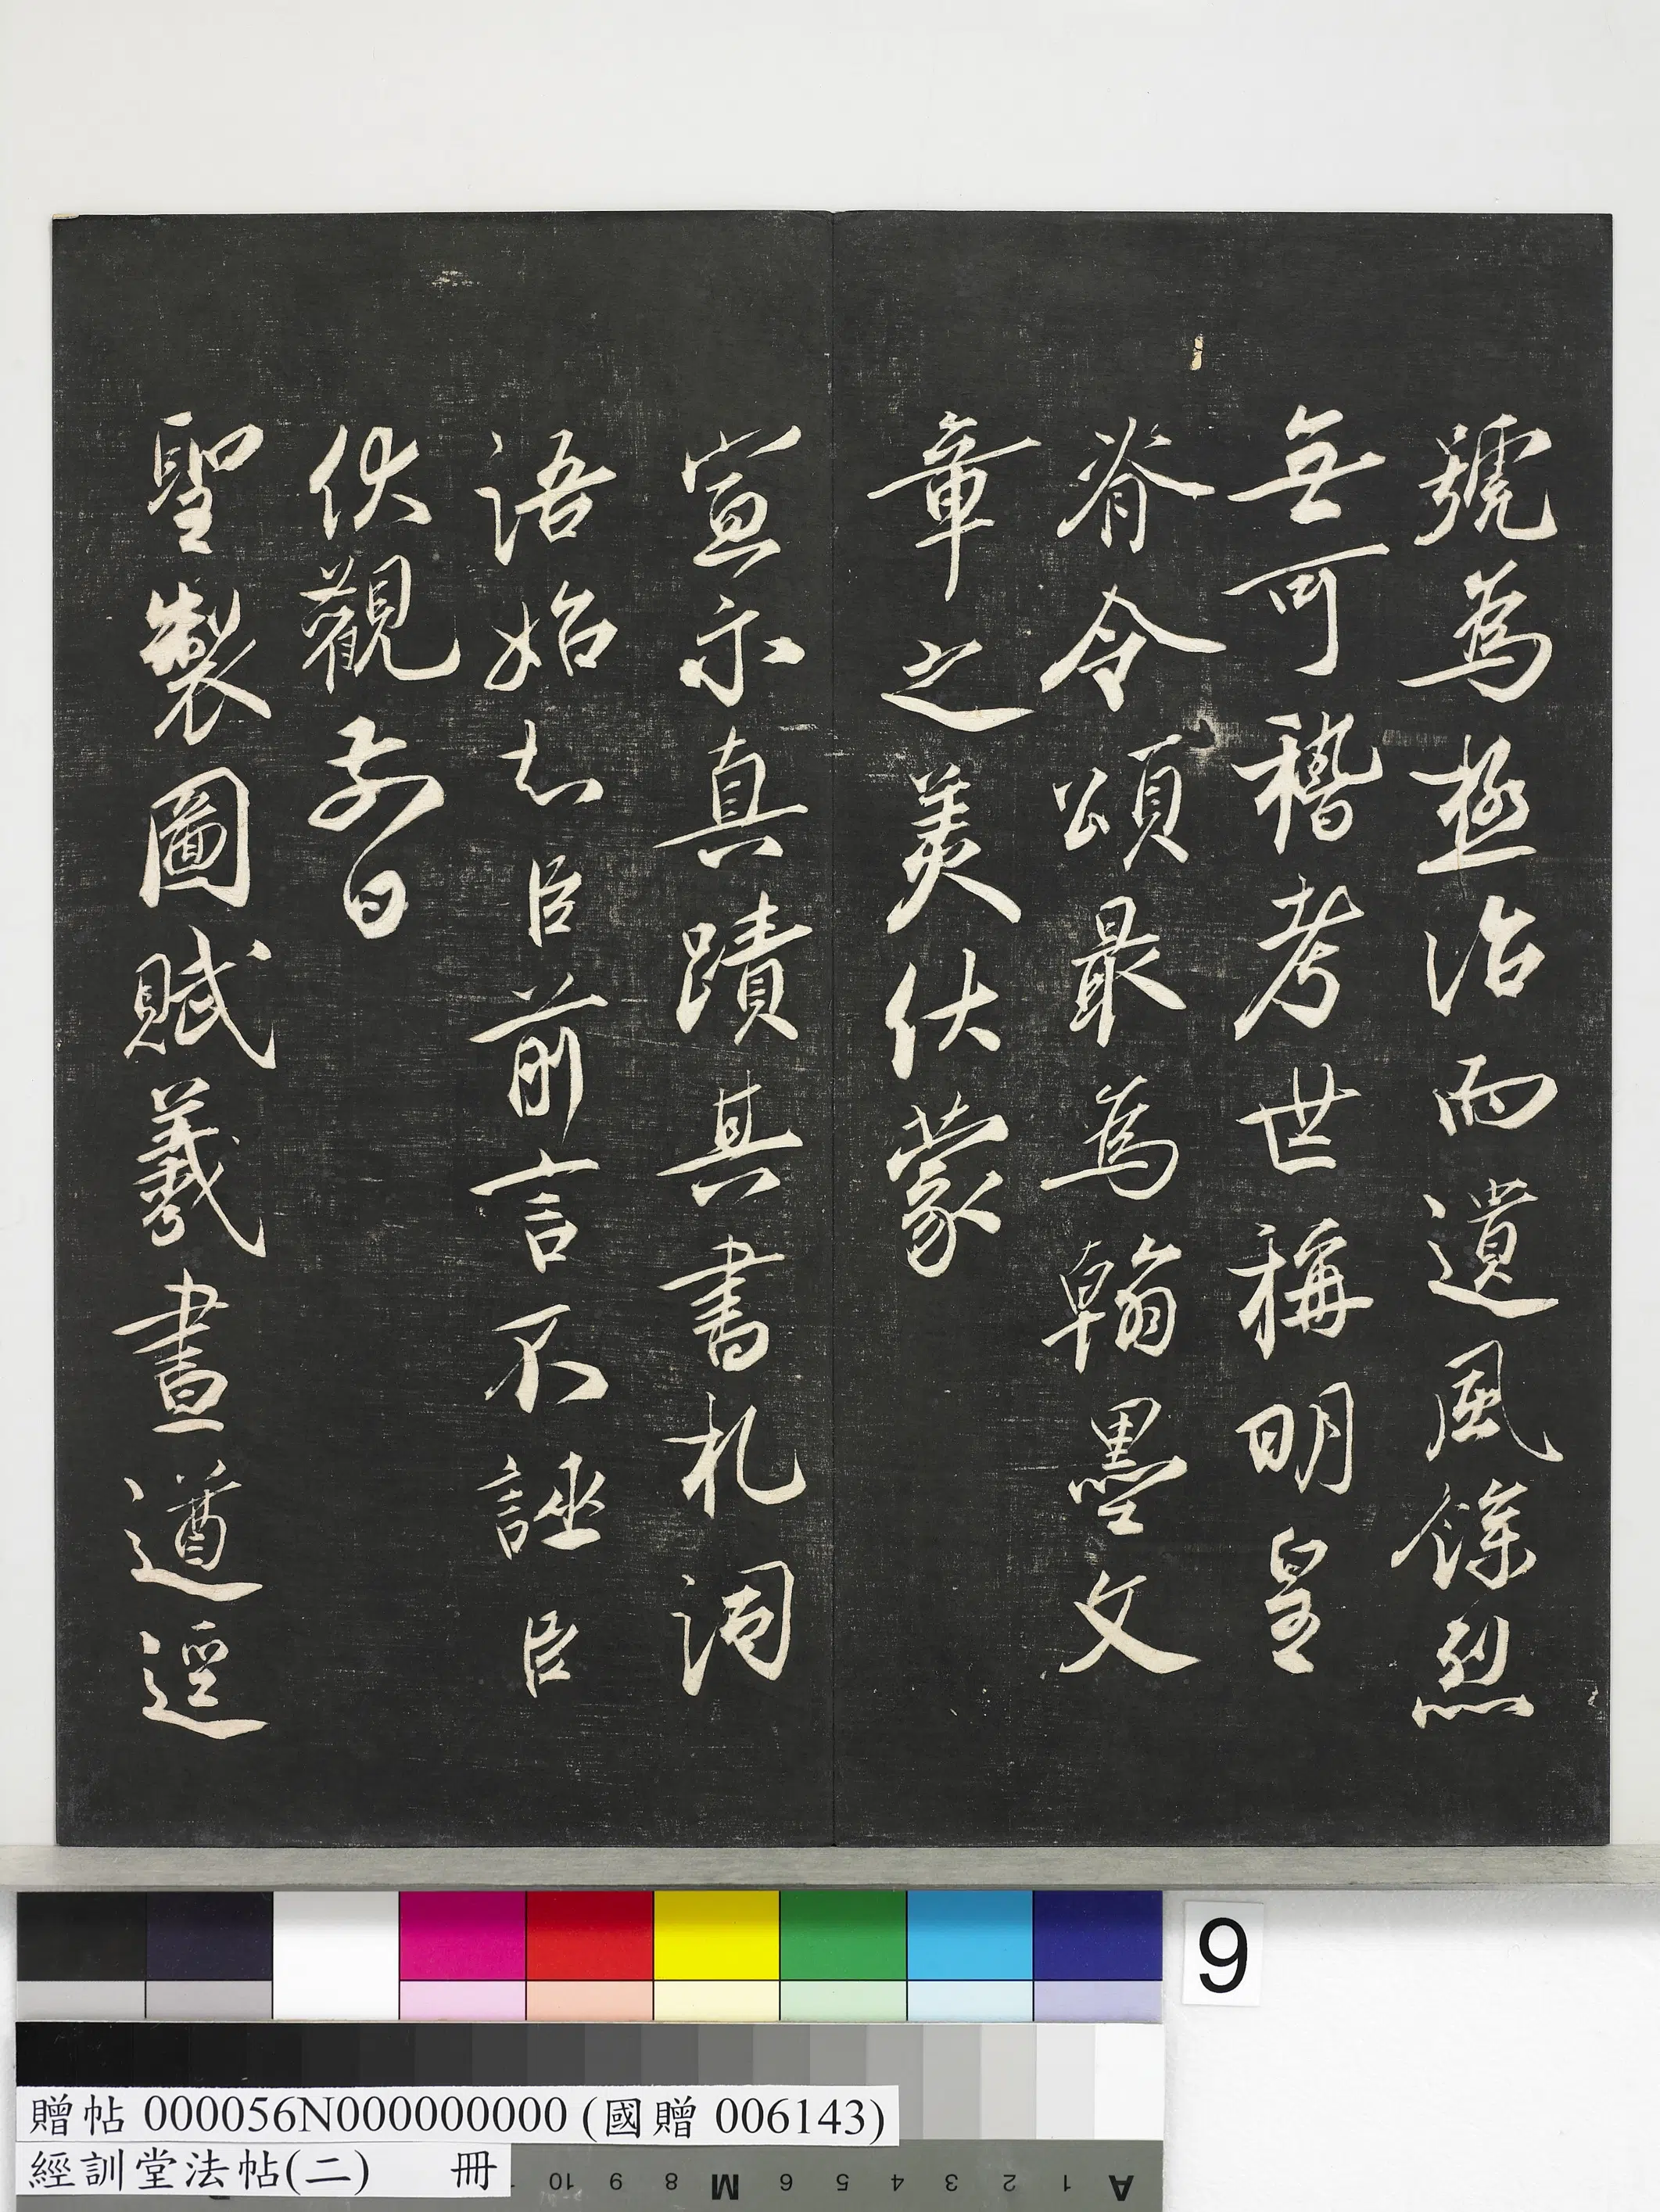 號為極治而遺風餘烈
無可稽考世稱明皇
脊令頌最為翰墨文
章之美伏蒙
宣示真蹟其書札詞
語始知臣前言不誣臣
伏觀前日
聖製圖賦羲畫遒逕
9
贈帖 000056N000000000 (國贈 006143)
經訓堂法帖(二) 冊
A 1 2 3 4 5 6 M 8 9 10